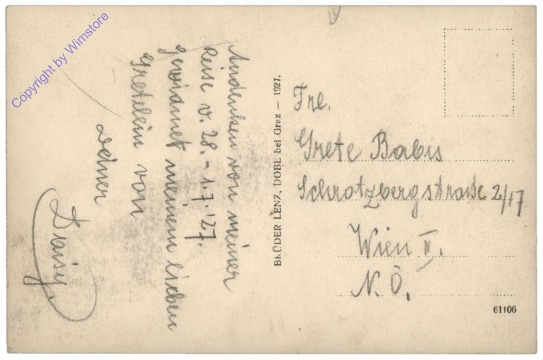 Andenken von meiner
Reise v. 28. - 1.7.'27.
gewidmet meinem lieben
Gretelein von
Deiner
Daisy.
BRÜDER LENZ, DOBL bei Graz — 1927.
Frl.
Grete Babis
Schrotzbergstraße 2/17
Wien II.
N. Ö.
61106
Copyright by Wimstore